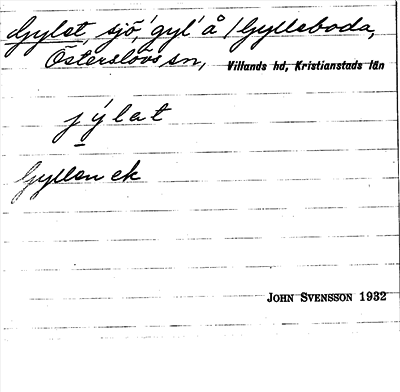 Gylet, sjö, 'gyl' å / Gylleboda,
Österslövs sn, Villands hd, Kristianstads län
jýlet
Gyllen ek
JOHN SVENSSON 1932